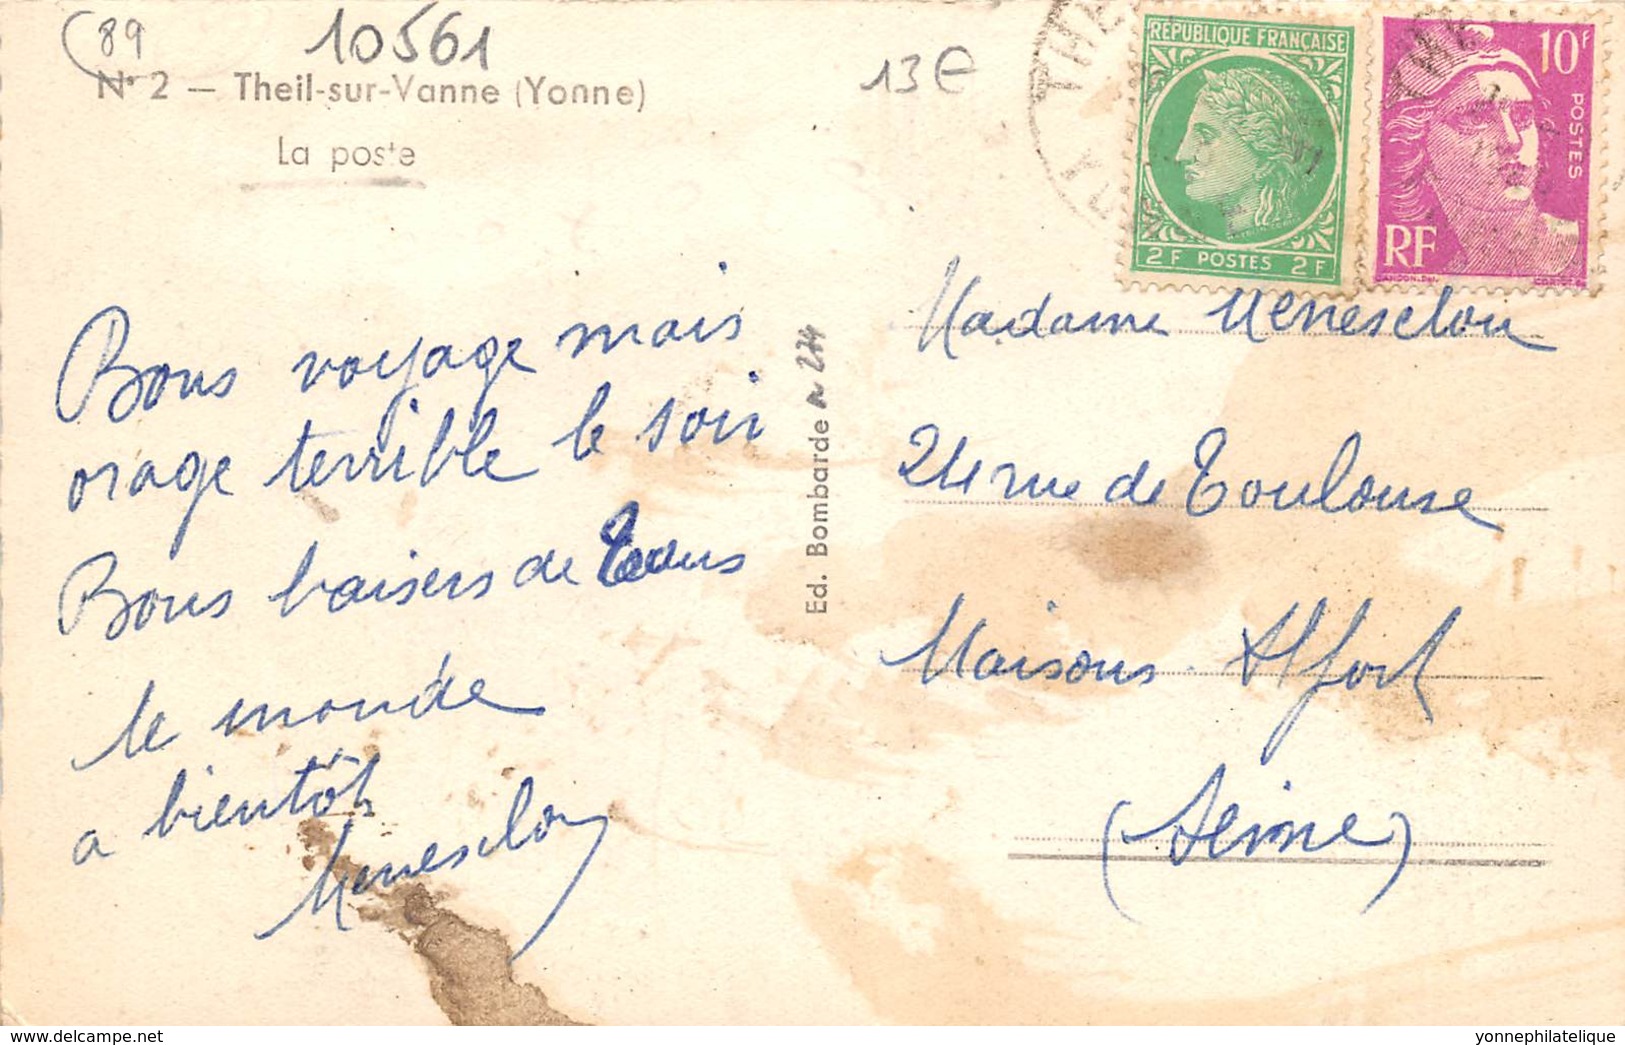 89
10561
N° 2 — Theil-sur-Vanne (Yonne)
La poste
13€
RÉPUBLIQUE FRANÇAISE
2F POSTES 2F
10F
POSTES
RF
Bons voyage mais
orage terrible le soir
Bons baisers de tous
le monde
a bientôt
Menesclou
Ed. Bombarde
Madame Menesclou
24 rue de Toulouse
Maisons Alfort
(Seine)
delcampe.net
yonnephilatelique